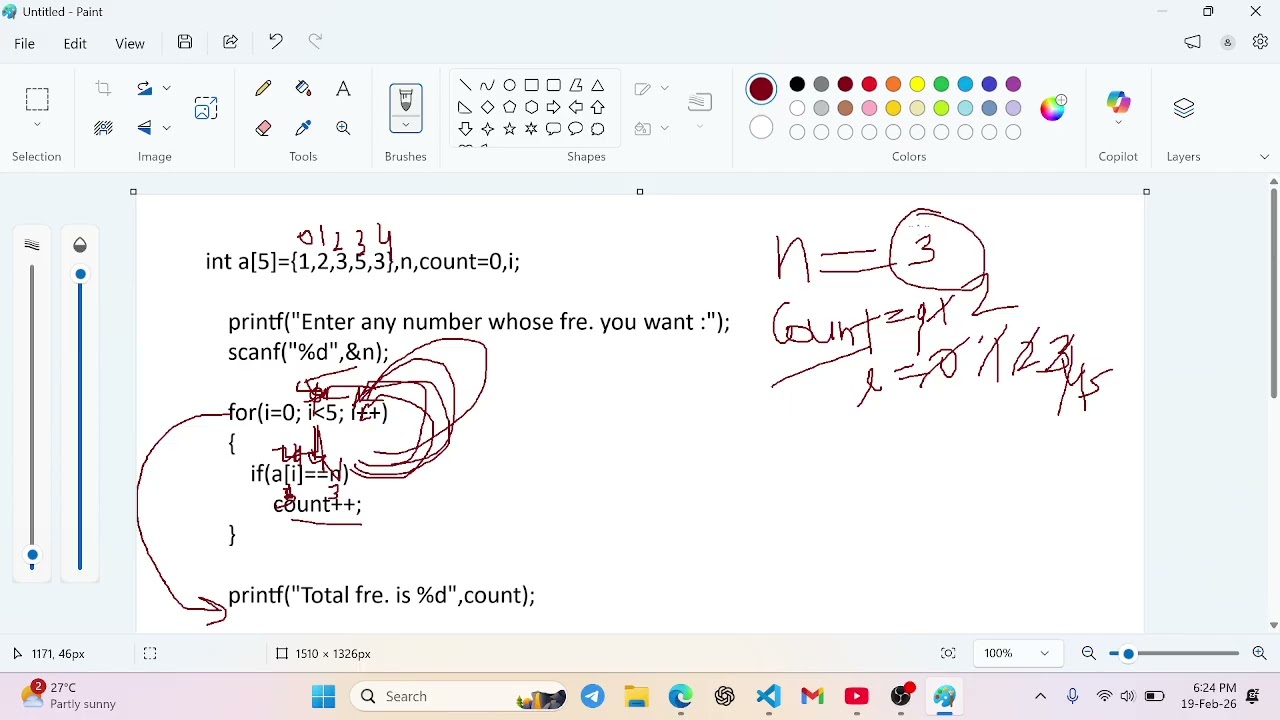 Untitled - Paint
File Edit View
Selection Image Tools Brushes Shapes Colors Copilot Layers
0 1 2 3 4
int a[5]={1,2,3,5,3},n,count=0,i;
n = 3
printf("Enter any number whose fre. you want :");
Count = 0 1 2
scanf("%d",&n);
i = 0 1 2 3 4 5
for(i=0; i<5; i++)
{
if(a[i]==n)
3 3
count++;
}
printf("Total fre. is %d",count);
1171, 46px
1510 × 1326px
100%
2
27°C
Partly sunny
Search
6:24 PM
19-Feb-26